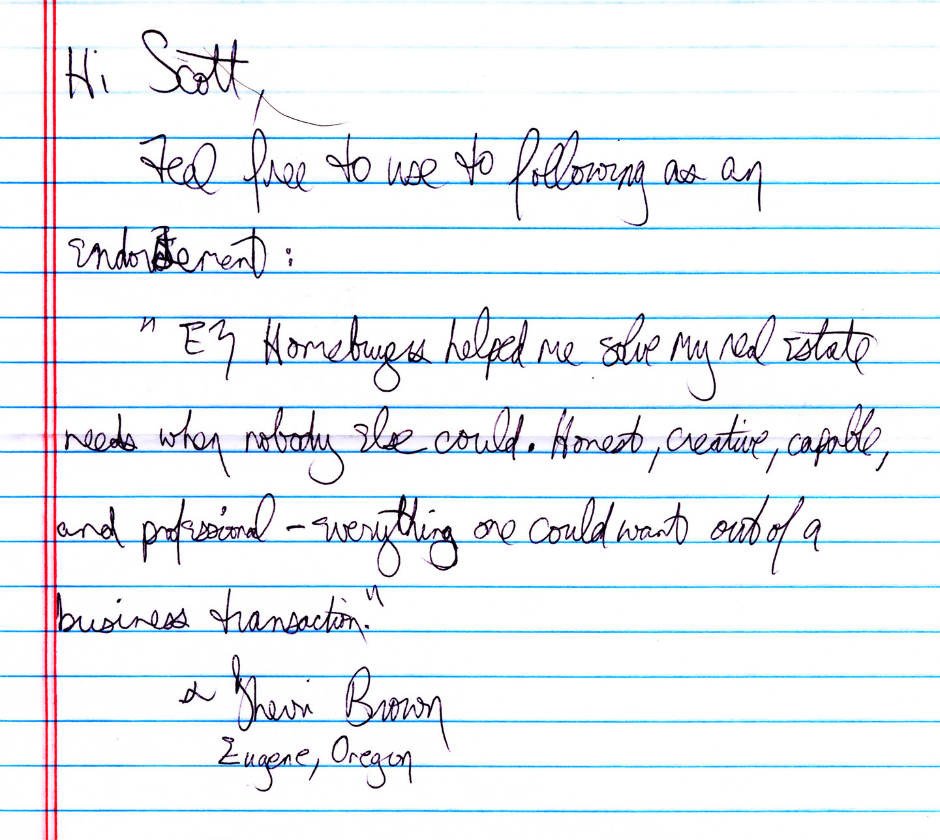 Hi Scott,
Feel free to use to following as an
endorsement:
"EZ Homebuyers helped me solve my real estate
needs when nobody else could. Honest, creative, capable,
and professional - everything one could want out of a
business transaction."
Brown
Eugene, Oregon